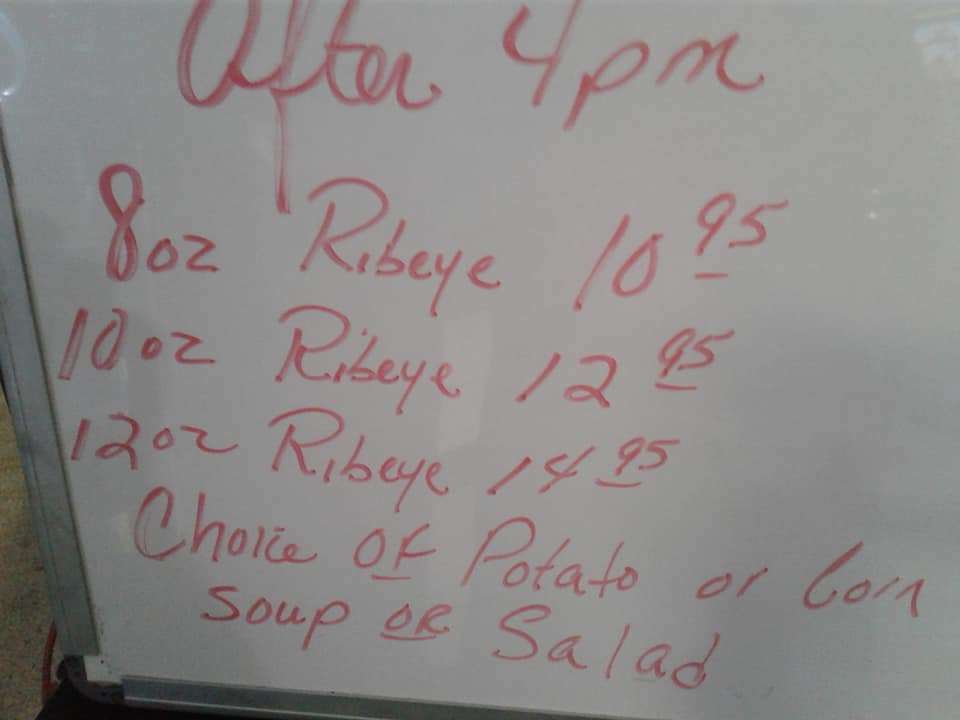 After 4pm
8oz Ribeye 10 95
10oz Ribeye 12 95
12oz Ribeye 14 95
Choice OF Potato or Corn
Soup OR Salad